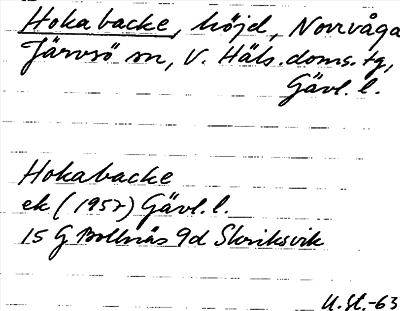 Hokabacke, höjd, Norrvåga
Järvsö sn, V. Häls. doms. tg,
Gävl. l.
Hokabacke
ek (1957) Gävl. l.
15 G Bollnäs 9d Skriksvik
U.St.-63